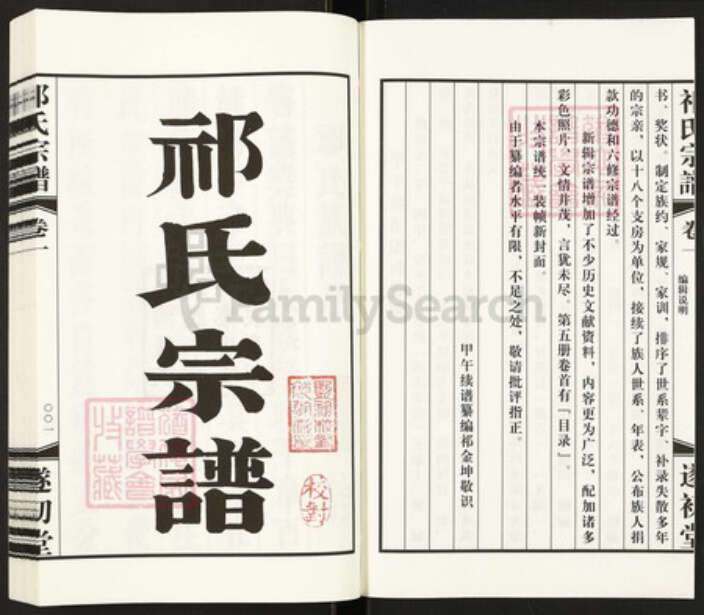 祁氏宗譜
卷一
编辑说明
遂初堂
书、奖状。制定族约、家规、家训，排序了世系辈字、补录失散多年
的宗亲，以十八个支房为单位，接续了族人世系、年表，公布族人捐
款功德和六修宗谱经过。
新辑宗谱增加了不少历史文献资料，内容更为广泛，配加诸多
彩色照片，文情并茂，言犹未尽。第五册卷首有「目录」。
本宗谱统一装帧新封面。
由于纂编者水平有限，不足之处，敬请批评指正。
甲午续谱纂编祁金坤敬识
祁氏宗譜
校對
祁氏宗譜
卷一
〇〇一
遂初堂
FamilySearch